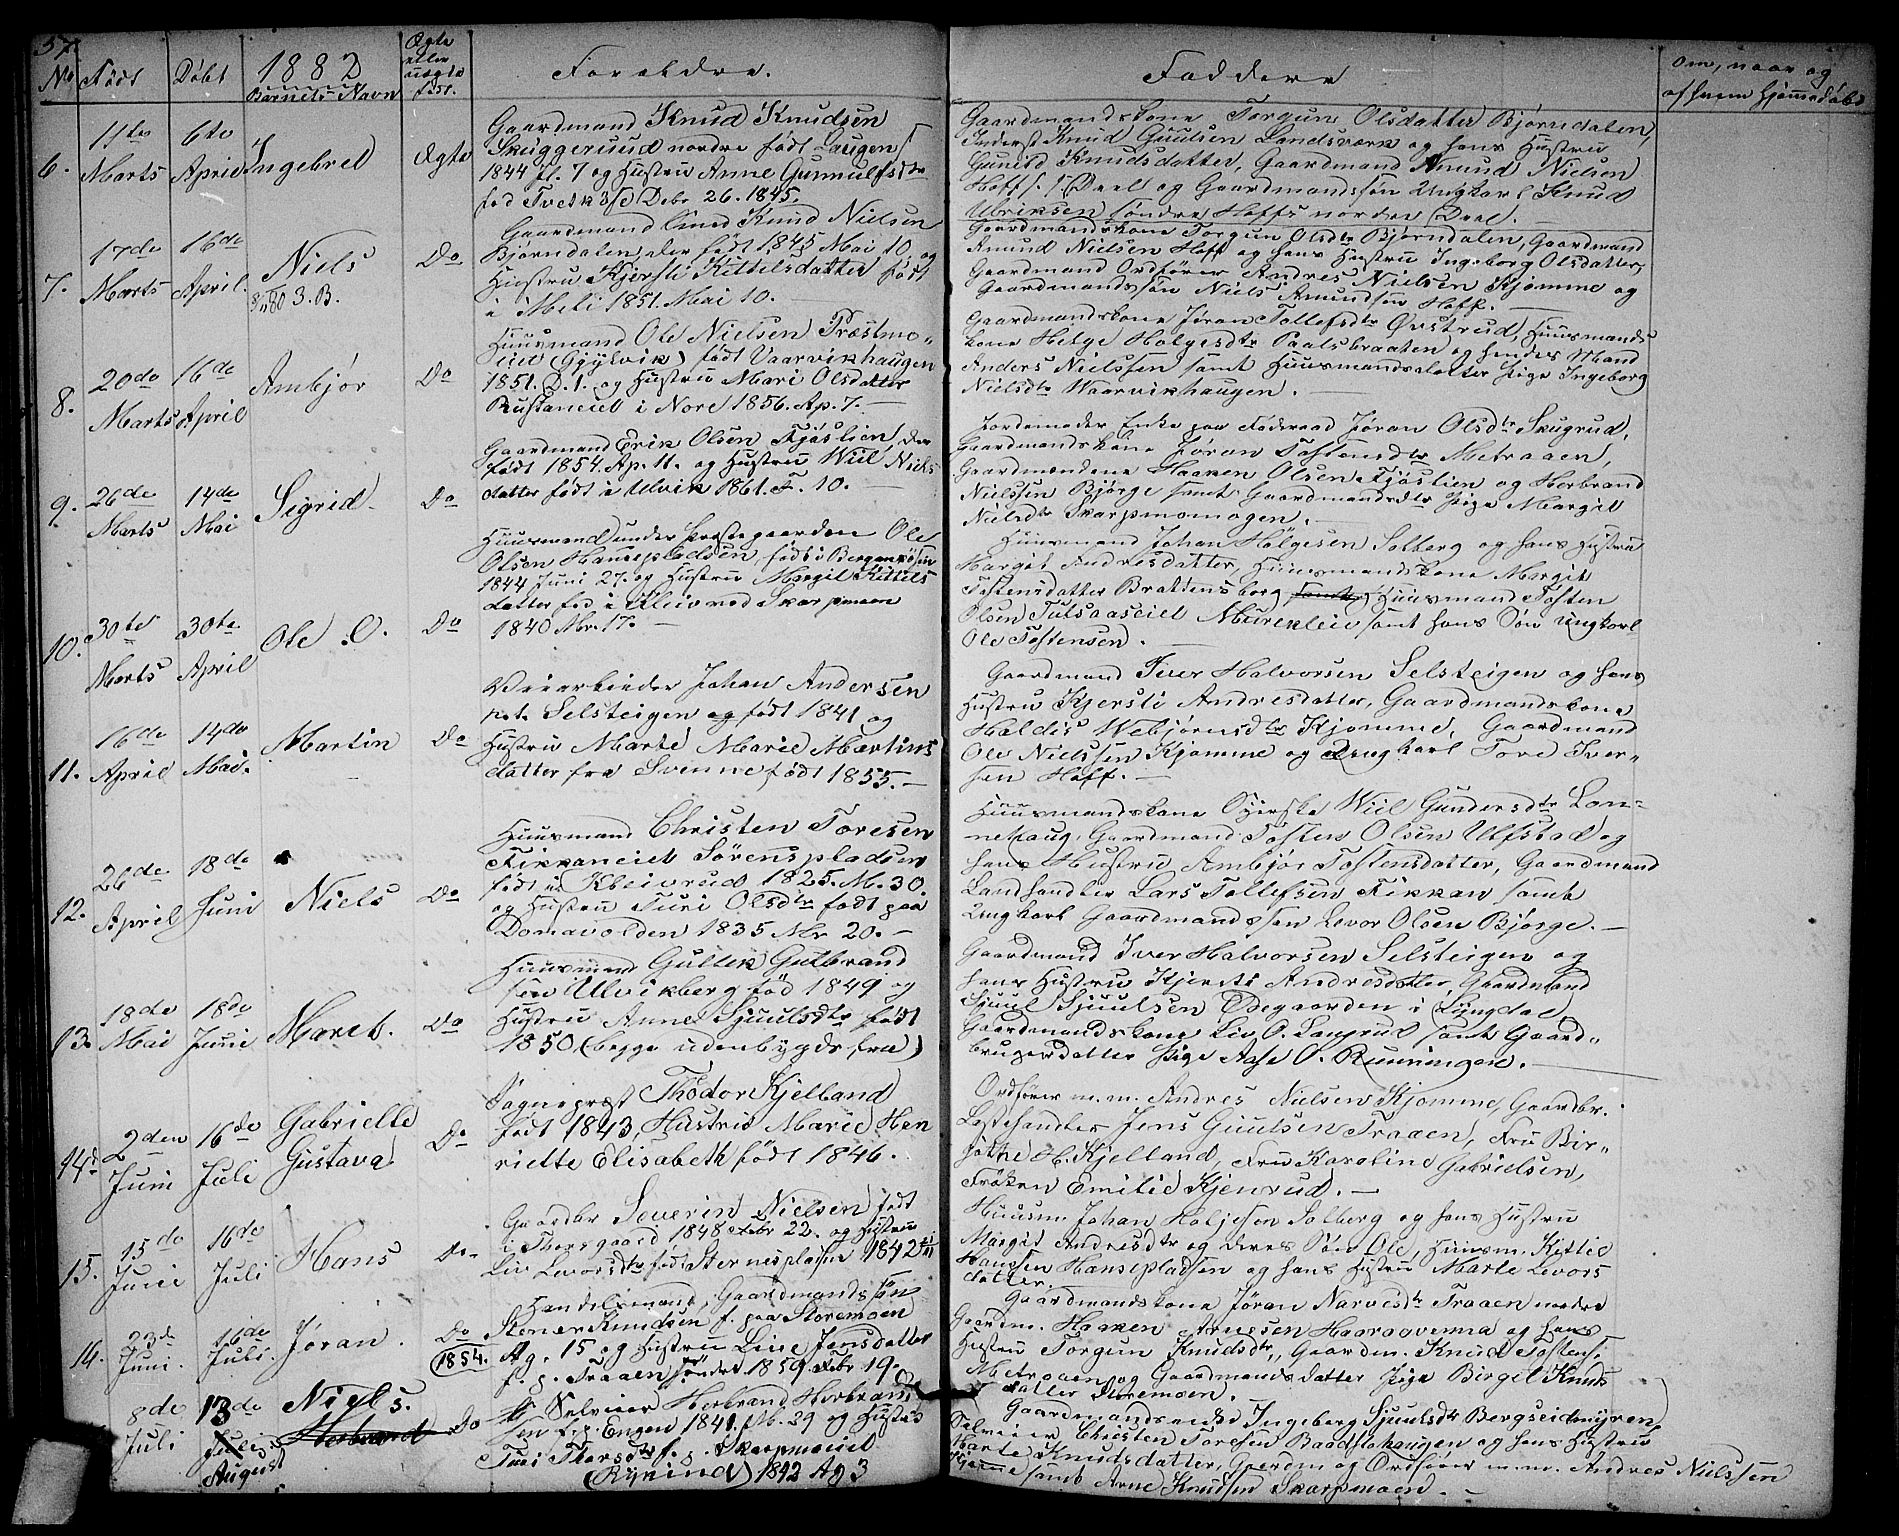 57.
No Födt Döbt 1882 Barnets Navn Ægte eller uægte født.
Forældre.
Faddere
Om, naar og af hvem hjemmedöbt
6. 11te Marts 6te April Ingebret Ægte
Gaardmand Knud Knudsen
Skuggerud nordre født Laugen
1844 fl. 7 og Hustru Anne Gunnulfsdtr
fød Tvetkose Debr 26. 1845.
Gaardmandskone Torgun Olsdatter Bjørndalen,
Inderst Knud Guulsen Landsverk og hans Hustru
Gunild Knudsdatter, Gaardmand Amund Nielsen
Hoff s. Deel og Gaardmandssøn Ungkarl Knud
Ulriksen søndre Hoffs nordre Deel.
7. 17de Marts 16de April. Niels 3. B. Do
Gaardmand Knud Nielsen
Bjørndalen, der født 1845 Mai 10 og
Hustru Kjersti Kittelsdatter født
i Meli 1851. Mai 10.
Gaardmandskone Torgun Olsdtr Bjørndalen, Gaardmand
Amund Nielsen Hoff og hans Hustru Ingeborg Olsdatter,
Gaardmand Ordfører Andres Nielsen Kjomme og
Gaardmandssøn Niels Amundsen Hoff.
8. 20de Marts 16de April Ambjør Do
Huusmand Ole Nielsen Præstmo-
eiet (Gjylvik) født Vaarvikhaugen
1851. D. 1. og Hustru Mari Olsdatter
Rustaneiet i Nore 1856. Ap. 7.
Gaardmandskone Jøran Tollefsdtr Øvstrud, Huusmands
kone Helge Holgesdtr Paalsbraaten og hendes Mand
Anders Nielssen samt Huusmandsdatter Pige Ingeborg
Nielsdtr Waarvikhaugen.
9. 26de Marts 14de Mai Sigrid. Do
Gaardmand Erik Olsen Fjøslien, der
født 1854. Ap. 11. og Hustru Wiil Niels
datter født i Ulvik 1861. F. 10.
Jordemoder Enke paa Føderaad Jøran Olsdtr Skugrud,
Gaardmandskone Jøran Tostensdtr Metraaen,
Gaardmændene Haaken Olsen Fjøslien og Herbrand
Nielssen Bjørge samt Gaardmandsdtr Pige Margit
Nielsdtr Skarpmomogen.
10. 30te Marts 30te April Ole O. Do
Huusmand under Præstegaarden Ole
Olsen Hansepladsen, født i Bergen
1844 Juni 27. og Hustru Margit Kittels
datter fød i Kleiv ved Skarpmoen
1840 Mr. 17.
Huusmand Johan Holgesen Solberg og hans Hustru
Margit Andresdatter, Huusmandskone Margit
Tostensdatter Brattensborg samt Huusmand Tosten
Olsen Tutsaaseiet Murenleiv samt hans Søn Ungkarl
Ole Tostensen.
11. 16de April 14de Mai. Martin Do
Veiarbeider Johan Andersen
Selsteigen og født 1841 og
Hustru Marte Marie Martins
datter fra Svenne født 1855.
Gaardmand Iver Halvorsen Selsteigen og hans
Hustru Kjersti Andresdatter, Gaardmandskone
Haldis Webjørnsdtr Kjomme, Gaardmand
Ole Nielssen Kjomme og Ungkarl Tore Iver-
sen Hoff.
12. 26de April 18de Juni Niels Do
Huusmand Christen Toresen
Fikkaneiet Sörenspladsen
født i Kleivrud 1825. M. 30.
og Hustru Turi Olsdtr født paa
Donavolden 1835 Mr 20.
Huusmandskone Wiil Gundersdtr Lon-
nehaug, Gaardmand Tosten Olsen Ulfstad og
hans Hustru Ambjør Tostensdatter, Gaardmand
Landhandler Lars Tollefsen Fikkan samt
Ungkarl Gaardmandssøn Levor Olsen Bjørge.
13. 18de Mai 18de Juni Maret. Do
Huusmand Gullek Gulbrand
sen Ulvikberg fød 1849 og
Hustru Anne Sjuulsdtr født
1850, (begge udenbygds fra)
Gaardmand Iver Halvorsen Selsteigen og
hans Hustru Kjersti Andresdatter, Gaardmand
Sjuul Sjuulsen Ødegaarden i Lyngdal
Gaardmandskone Liv O. Laugrud samt Gaard-
brugerdatter Pige Aase O. Runningen.
14. 2den Juni 16de Juli Gabrielle Gustava Do
Sogneprest Thodor Kjelland
født 1843, Hustru Marie Hen
riette Elisabeth født 1846.
Ordfører m. m. Andres Nielsen Kjomme, Gaardbr.
Lestehandler Jens Guulsen Traaen, Fru Bir-
githe H. Kjelland, Fru Karoline Gabrielsen,
Frøken Emilie Kjenrud.
15. 15de Juni 16de Juli Hans Do
Gaardbr Severin Nielsen født
i Thorsgaard 1848 Febr 22. og Hustru
Liv Levorsdtr født Sternesplassen 1842
Huusm. Johan Holjesen Solberg og hans Hustru
Margit Andresdtr og deres Søn Ole, Huusm. Kittil
Hanssen Hansepladsen og hans Hustru Marte Levors
datter.
16. 23de Juni. 16de Juli. Jøran. Do (1854.)
Handelsmand, Gaardmandssøn
Stener Knudsen f. paa Storemoen
Ag. 15 og Hustru Line Jensdatter
f. p. Traaen søndre 1859 Febr 19.
Gaardmandskone Jøran Narvesdtr Traaen nordre
Gaardm. Haaken Arnesen Haaraavenna og hans
Hustru Torgun Knudsdtr, Gaardm. Knud Tostens.
Metraaen og Gaardmandsdatter Pige Birgit Knuds
datter Storemoen.
8de Juli 13de Juli August Niels. Herbrand Do
Selveier Herbrand Herbrand
sen f. p. Engen 1841. Mb. 29 og Hustru
Turi Thorsdtr f. p. Skarpmoeiet
(Ryrind) 1842 Ag 3
Gaardmandsenke Ingeborg Sjuulsdtr Bergseidmyren,
Selveier Christen Toresen Baadstohaugen og hans Hustru
Marte Knudsdatter, Gaardm og Ordfører m. m. Andres Nielssen
Kjomme samt Arne Knudsen Skarpmoen.